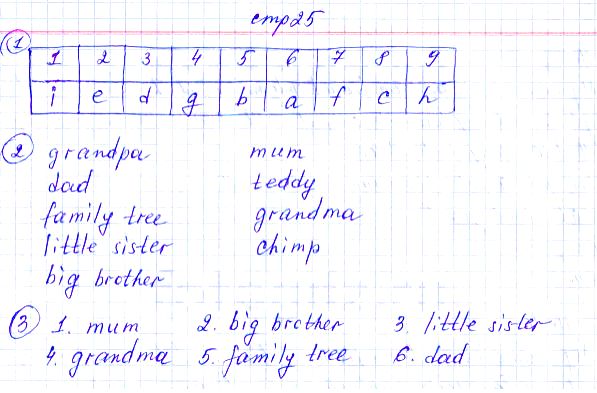 стр 25
1
1 2 3 4 5 6 7 8 9
i e d g b a f c h
2
grandpa mum
dad teddy
family tree grandma
little sister chimp
big brother
3 1. mum 2. big brother 3. little sister
4. grandma 5. family tree 6. dad